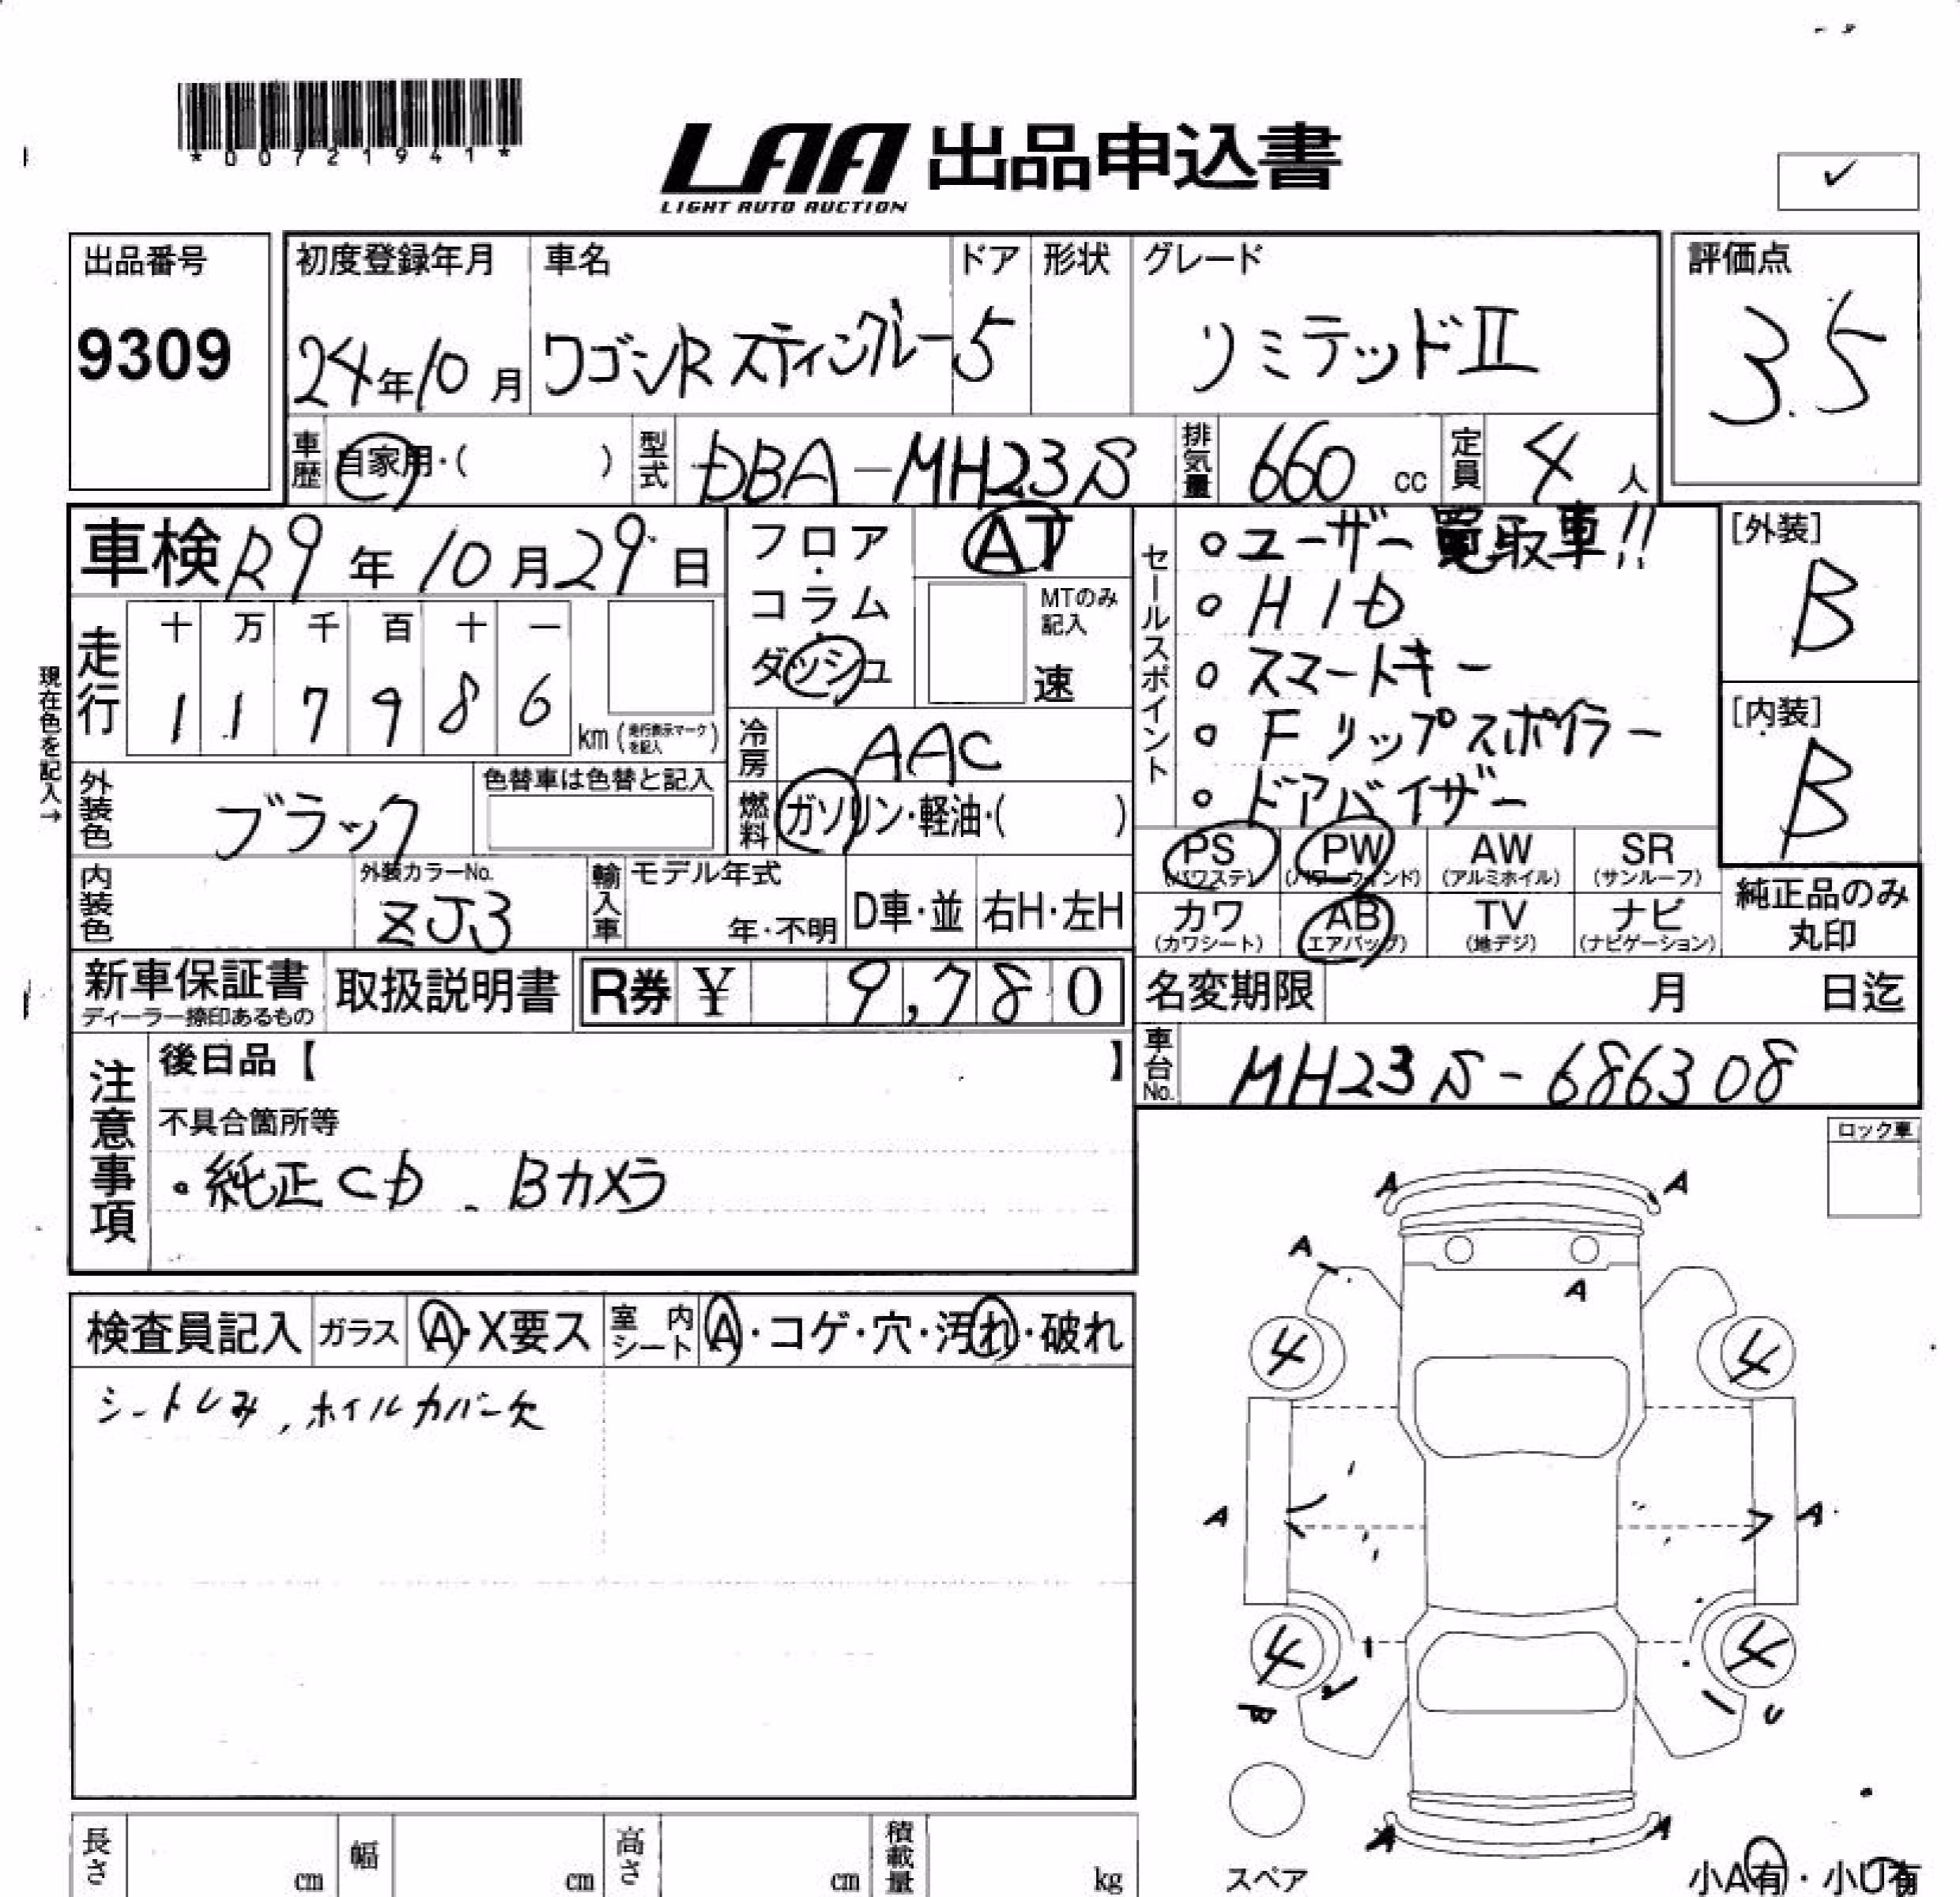 *00721941*
LAA 出品申込書
LIGHT AUTO AUCTION
✓
出品番号
9309
初度登録年月
24年10月
車名
ワゴンRスティングレー
ドア
5
形状
グレード
リミテッドⅡ
評価点
3.5
車歴
自家用・( )
型式
DBA-MH23S
排気量
660 cc
定員
4人
車検 R9年10月29日
フロア・コラム・ダッシュ
AT
MTのみ記入
速
セールスポイント
○ユーザー買取車!!
○HID
○スマートキー
○Fリップスポイラー
○ドアバイザー
[外装]
B
[内装]
B
現在色を記入→
走行
十 万 千 百 十 一
1 1 7 9 8 6
km(走行表示マークを記入)
冷房
AAC
外装色
ブラック
色替車は色替と記入
燃料
ガソリン・軽油・( )
内装色
外装カラーNo.
ZJ3
輸入車
モデル年式
年・不明
D車・並
右H・左H
PS (パワステ)
PW (パワーウィンド)
AW (アルミホイル)
SR (サンルーフ)
カワ (カワシート)
AB (エアバッグ)
TV (地デジ)
ナビ (ナビゲーション)
純正品のみ
丸印
新車保証書
ディーラー捺印あるもの
取扱説明書
R券 ¥ 9,780
名変期限 月 日迄
車台No.
MH23S-686308
注意事項
後日品【 】
不具合箇所等
・純正CD、Bカメラ
ロック車
検査員記入
ガラス
A・X要ス
室内シート
A・コゲ・穴・汚れ・破れ
シートしみ、ホイルカバー欠
A A
A
A
4 4
A A
4 4
U
A A
スペア
小A有・小U有
長さ cm
幅 cm
高さ cm
積載量 kg